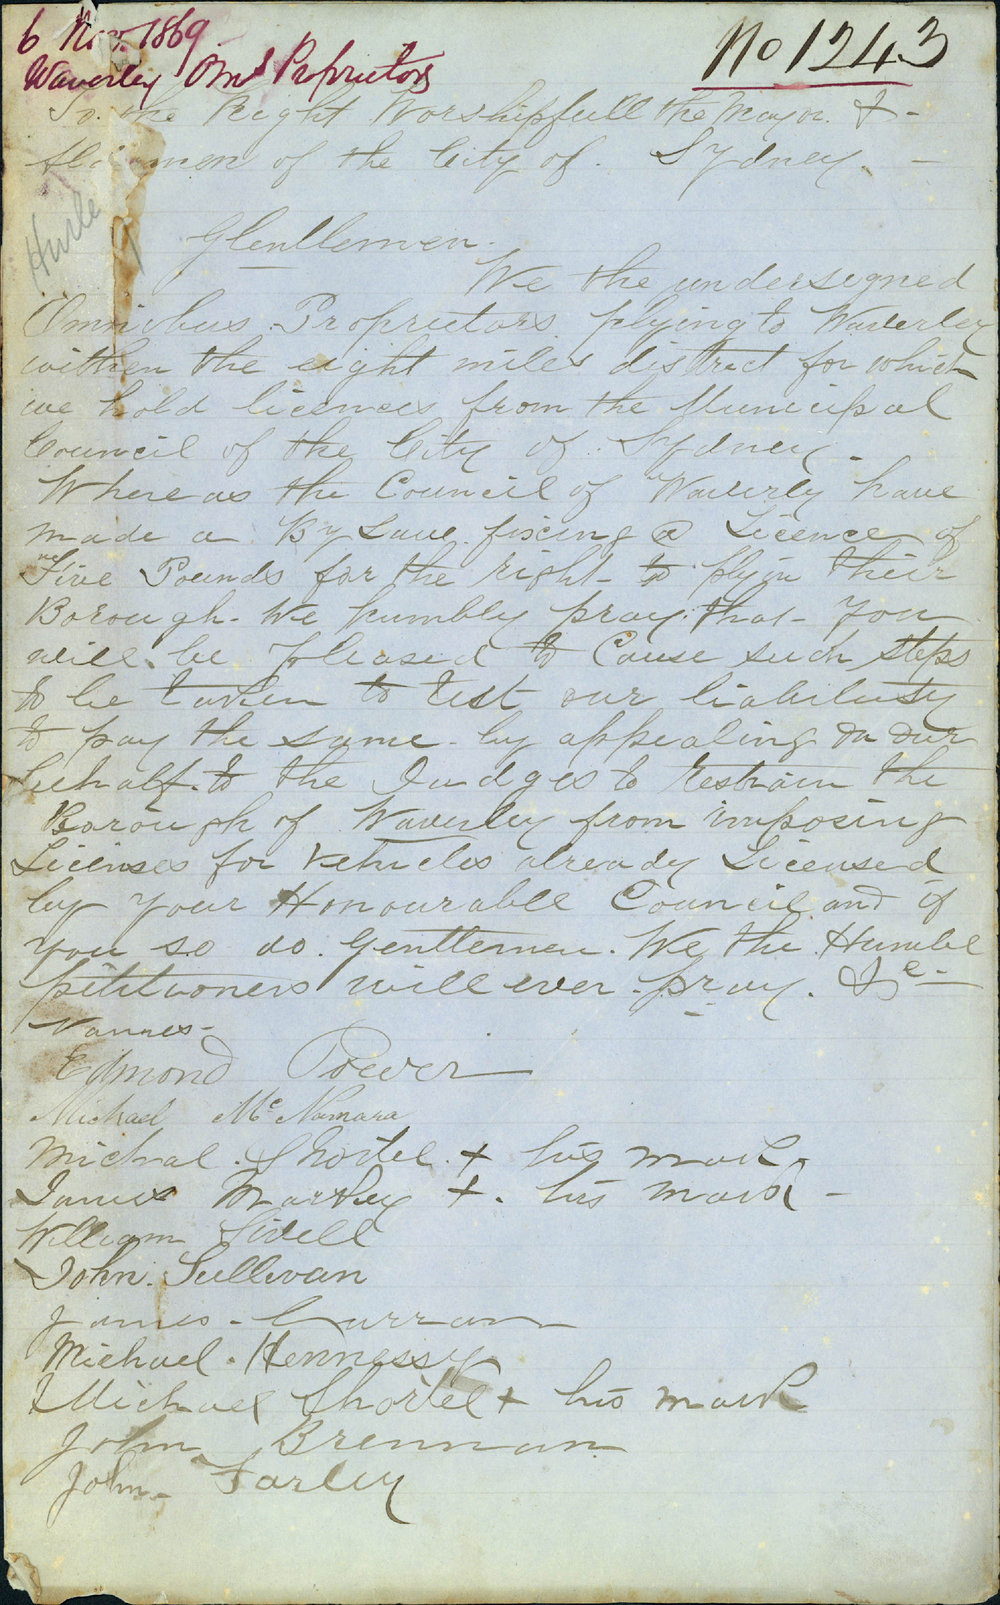 6 Nov. 1869
Waverley Omb Proprietors
No 1243
To the Right Worshipfull the Mayor &
Aldermen of the City of Sydney. —
Hurle
Glentlemen.
We the undersigned
Omnibus Proprietors plying to Waverley
within the eight miles district for which
we hold licences from the Municipal
Council of the City of Sydney -
Where as the Council of Waverly have
made a By Law fixing a Licence of
Five Pounds for the right to ply in their
Borough. We humbly pray that you
will be pleased to Cause such steps
to be taken to test our liability
to pay the same by appealing on our
behalf to the Judges to restrain the
Borough of Waverley from imposing
Licenses for vehicles already Licensed
by your Honourable Council and if
you so do. Gentlemen. We the Humble
petitioners will ever pray. &c -
Names -
Edmond Power
Michael McNamara
Michal Shortel + his mark
James Marthey + his mark -
William Sidell
John Sullivan
James Curran
Michael Hennessy
Michael Shortel + his mark
John Brennan
John Farley